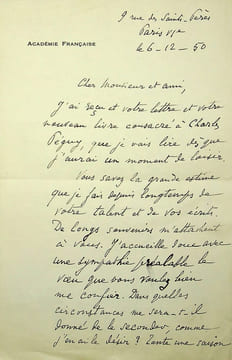 9 rue des Saints-Pères
Paris VIe
le 6-12-50
ACADÉMIE FRANÇAISE
Cher Monsieur et ami,
J'ai reçu et votre lettre et votre
nouveau livre consacré à Charles
Péguy, que je vais lire dès que
j'aurai un moment de loisir.
Vous savez la grande estime
que je fais depuis longtemps de
votre talent et de vos écrits.
De longs souvenirs m'attachent
à vous. J'accueille donc avec
une sympathie préalable le
vœu que vous voulez bien
me confier. Dans quelles
circonstances me sera-t-il
donné de le seconder, comme
j'en ai le désir ? Toute une saison